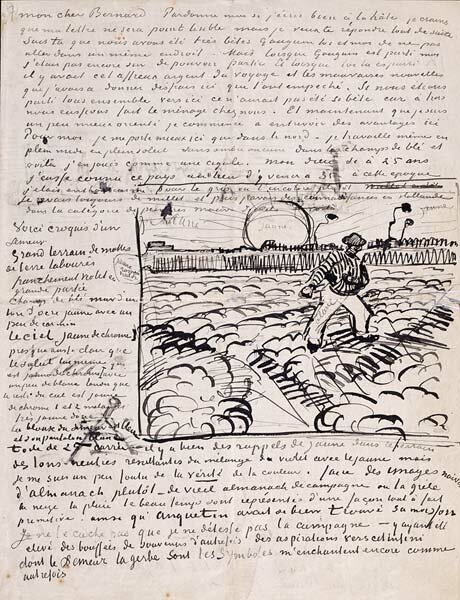 mon cher Bernard Pardonne moi si j'écris bien à la hâte je crains
que ma lettre ne sera point lisible mais je veux te répondre tout de suite
Sais tu que nous avons été très bêtes Gauguin toi et moi de ne pas
aller dans un même endroit. Mais lorsque Gauguin est parti moi
j'étais pas encore sûr de pouvoir partir et lorsque toi tu es parti
il y avait cet affreux argent du voyage et les mauvaises nouvelles
que j'avais a donner des frais ici qui l'ont empeché. Si nous étions
parti tous ensemble vers ici ce n'aurait pas été si bête car à trois
nous eussions fait le ménage chez nous. Et maintenant que je suis
un peu mieux orienté je commence à entrevoir des avantages ici
Pour moi je me porte mieux ici que dans le nord – je travaille même en
plein midi en plein soleil sans ombre aucune dans les champs de blé et
voilà j'en jouis comme une cigale. mon dieu si à 25 ans
j'eusse connu ce pays au lieu d'y venir à 35 – à cette époque
j'étais enthousiasmé pour le gris ou l'incolore plutôt
je rêvais toujours de millet et puis j'avais des connaissances en Hollande
dans la catégorie de peintres mauve
jaune
Voici croquis d'un
semeur
Grand terrain de mottes
de terre labourés
franchement violet en
grande partie
Champ de blé mûr d'un
ton d'ocre jaune avec un
peu de carmin
le ciel jaune de chrome 1
presque aussi clair que
le soleil lui même qui
est jaune de chrome 1 avec
un peu de blanc tandis que
le reste du ciel est jaune
de chrome 1 et 2 mélangés
très jaune donc
La blouse du semeur est bleue
et son pantalon blanc
toile de 25 carrée – il y a bien des rappels de jaune dans le terrain
des tons neutres résultants du mélange du violet avec le jaune mais
je me suis un peu foutu de la vérité de la couleur. faire des images naïves
d'almanach plutôt – de vieil almanach de campagne où la grêle
la neige la pluie le beau temps sont représentés d'une façon tout à fait
primitive. ainsi qu'Anquetin avait si bien trouvé sa moisson
Je ne te cache pas que je ne déteste pas la campagne – y ayant été
élevé des bouffées de souvenirs d'autrefois des aspirations vers cet infini
dont le Semeur la gerbe sont les symboles m'enchantent encore comme
autrefois